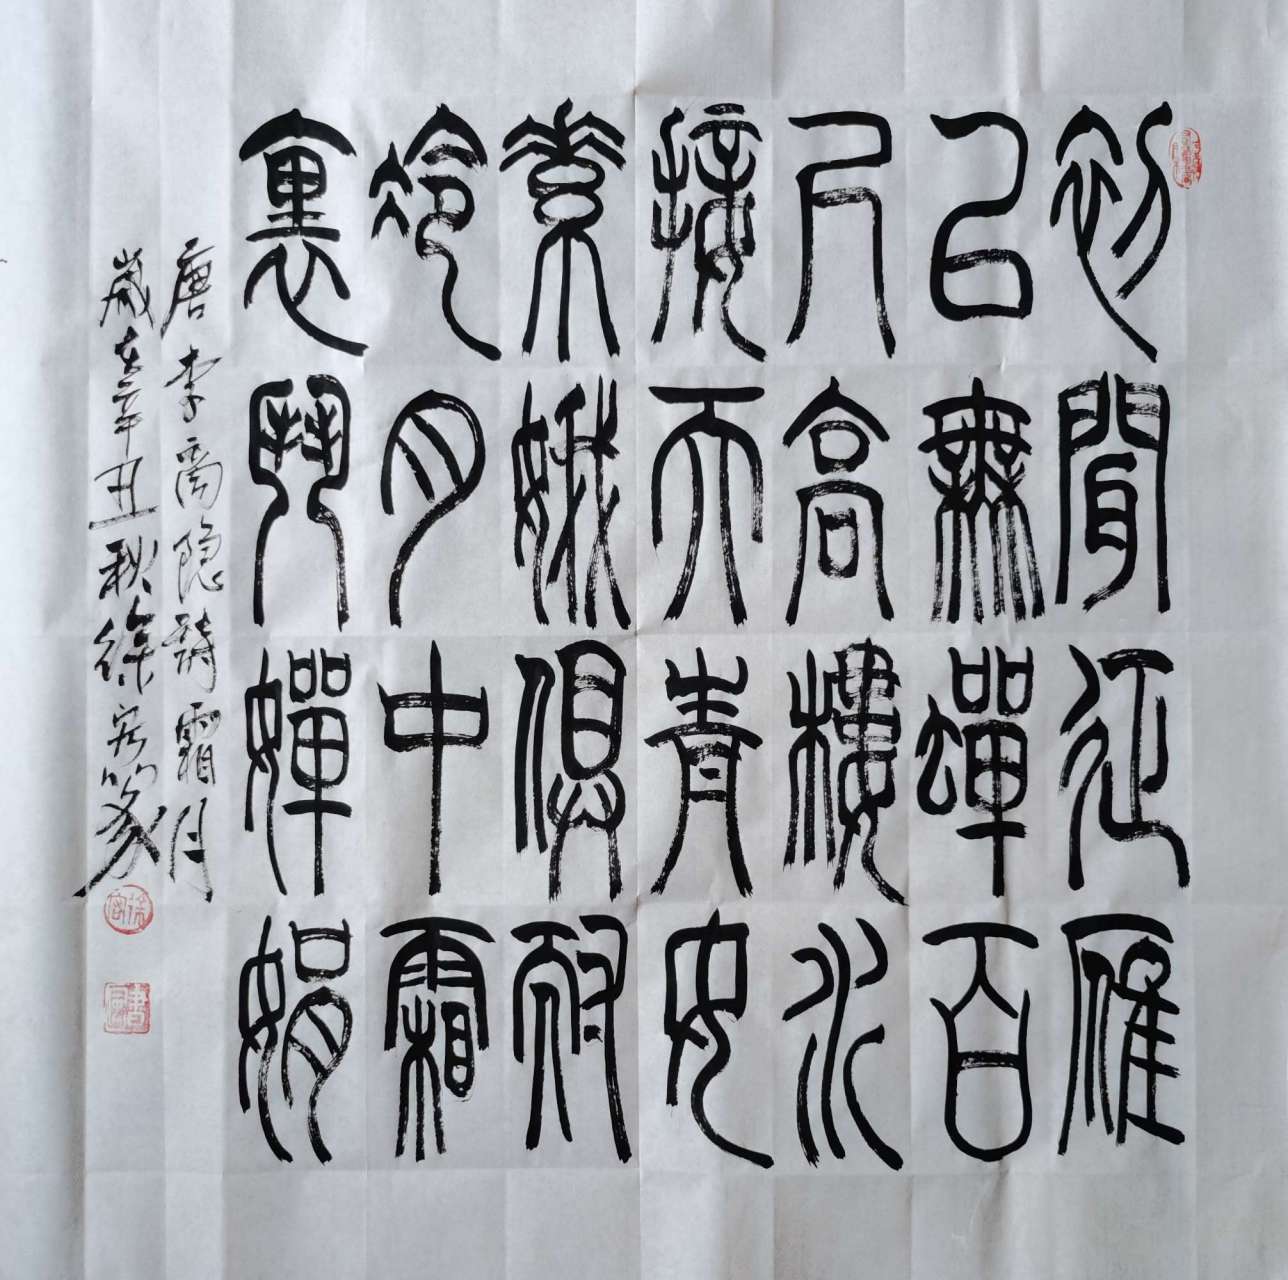 初聞征雁
已無蟬百
尺高樓水
接天青女
素娥俱耐
冷月中霜
裏鬥嬋娟
唐李商隐詩霜月
歲在辛丑秋徐篆